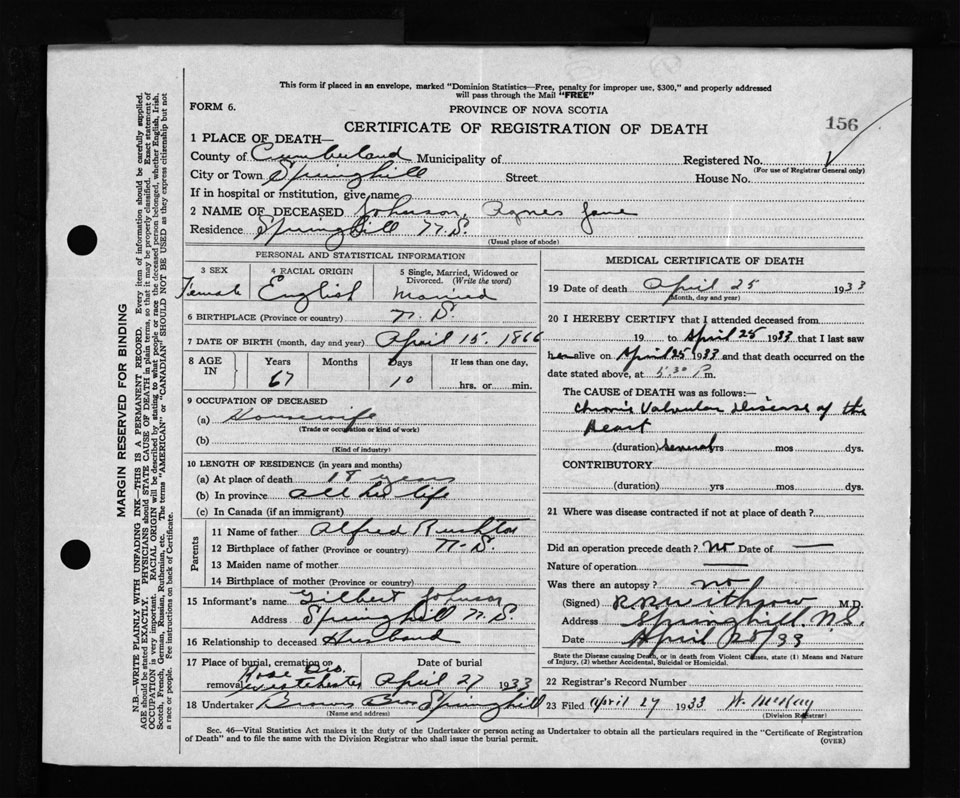 This form if placed in an envelope, marked "Dominion Statistics—Free, penalty for improper use, $300," and properly addressed
will pass through the Mail "FREE"
FORM 6.
PROVINCE OF NOVA SCOTIA
CERTIFICATE OF REGISTRATION OF DEATH
156
1 PLACE OF DEATH—
County of Cumberland Municipality of Registered No.
(For use of Registrar General only)
City or Town Springhill Street House No.
If in hospital or institution, give name
2 NAME OF DECEASED Johnson, Agnes Jane
Residence Springhill N.S.
(Usual place of abode)
PERSONAL AND STATISTICAL INFORMATION
3 SEX 4 RACIAL ORIGIN 5 Single, Married, Widowed or
Divorced. (Write the word)
Female English Married
6 BIRTHPLACE (Province or country) N.S.
7 DATE OF BIRTH (month, day and year) April 15. 1866
8 AGE IN Years Months Days If less than one day,
67 10 hrs. or min.
9 OCCUPATION OF DECEASED
(a) Housewife
(Trade or occupation or kind of work)
(b)
(Kind of industry)
10 LENGTH OF RESIDENCE (in years and months)
(a) At place of death years
(b) In province all her life
(c) In Canada (if an immigrant)
Parents
11 Name of father Alfred Rushton
12 Birthplace of father (Province or country) N.S.
13 Maiden name of mother
14 Birthplace of mother (Province or country)
15 Informant's name Gilbert Johnson
Address Springhill N.S.
16 Relationship to deceased Husband
17 Place of burial, cremation or Date of burial
removal Westchester April 27 1933
18 Undertaker Brown Bros Springhill
(Name and address)
MEDICAL CERTIFICATE OF DEATH
19 Date of death April 25 1933
(Month, day and year)
20 I HEREBY CERTIFY that I attended deceased from
19 to April 25 1933 that I last saw
her alive on April 25 1933 and that death occurred on the
date stated above, at 5.30 P.m.
The CAUSE OF DEATH was as follows:—
Chronic Valvular Disease of the
Heart
(duration) several yrs mos dys.
CONTRIBUTORY
(duration) yrs mos dys.
21 Where was disease contracted if not at place of death?
Did an operation precede death? No Date of —
Nature of operation —
Was there an autopsy? No
(Signed) Withrow M.D.
Address Springhill. N.S.
Date April 25/33
State the Disease causing Death, or in death from Violent Causes, state (1) Means and Nature
of Injury, (2) whether Accidental, Suicidal or Homicidal.
22 Registrar's Record Number
23 Filed April 27 1933 W. McKay
(Division Registrar)
Sec. 46—Vital Statistics Act makes it the duty of the Undertaker or person acting as Undertaker to obtain all the particulars required in the "Certificate of Registration
of Death" and to file the same with the Division Registrar who shall issue the burial permit.
(OVER)
MARGIN RESERVED FOR BINDING
N.B.—WRITE PLAINLY WITH UNFADING INK—THIS IS A PERMANENT RECORD. Every item of information should be carefully supplied.
AGE should be stated EXACTLY. PHYSICIANS should STATE CAUSE OF DEATH in plain terms, so that it may be properly classified. Exact statement of
OCCUPATION is very important. RACIAL ORIGIN will be described by stating to what people or race the deceased person belonged, whether English, Irish,
Scotch, French, German, Russian, Ruthenian, etc. The terms "AMERICAN" or "CANADIAN" SHOULD NOT BE USED as they express citizenship but not
a race or people. See instructions on back of Certificate.